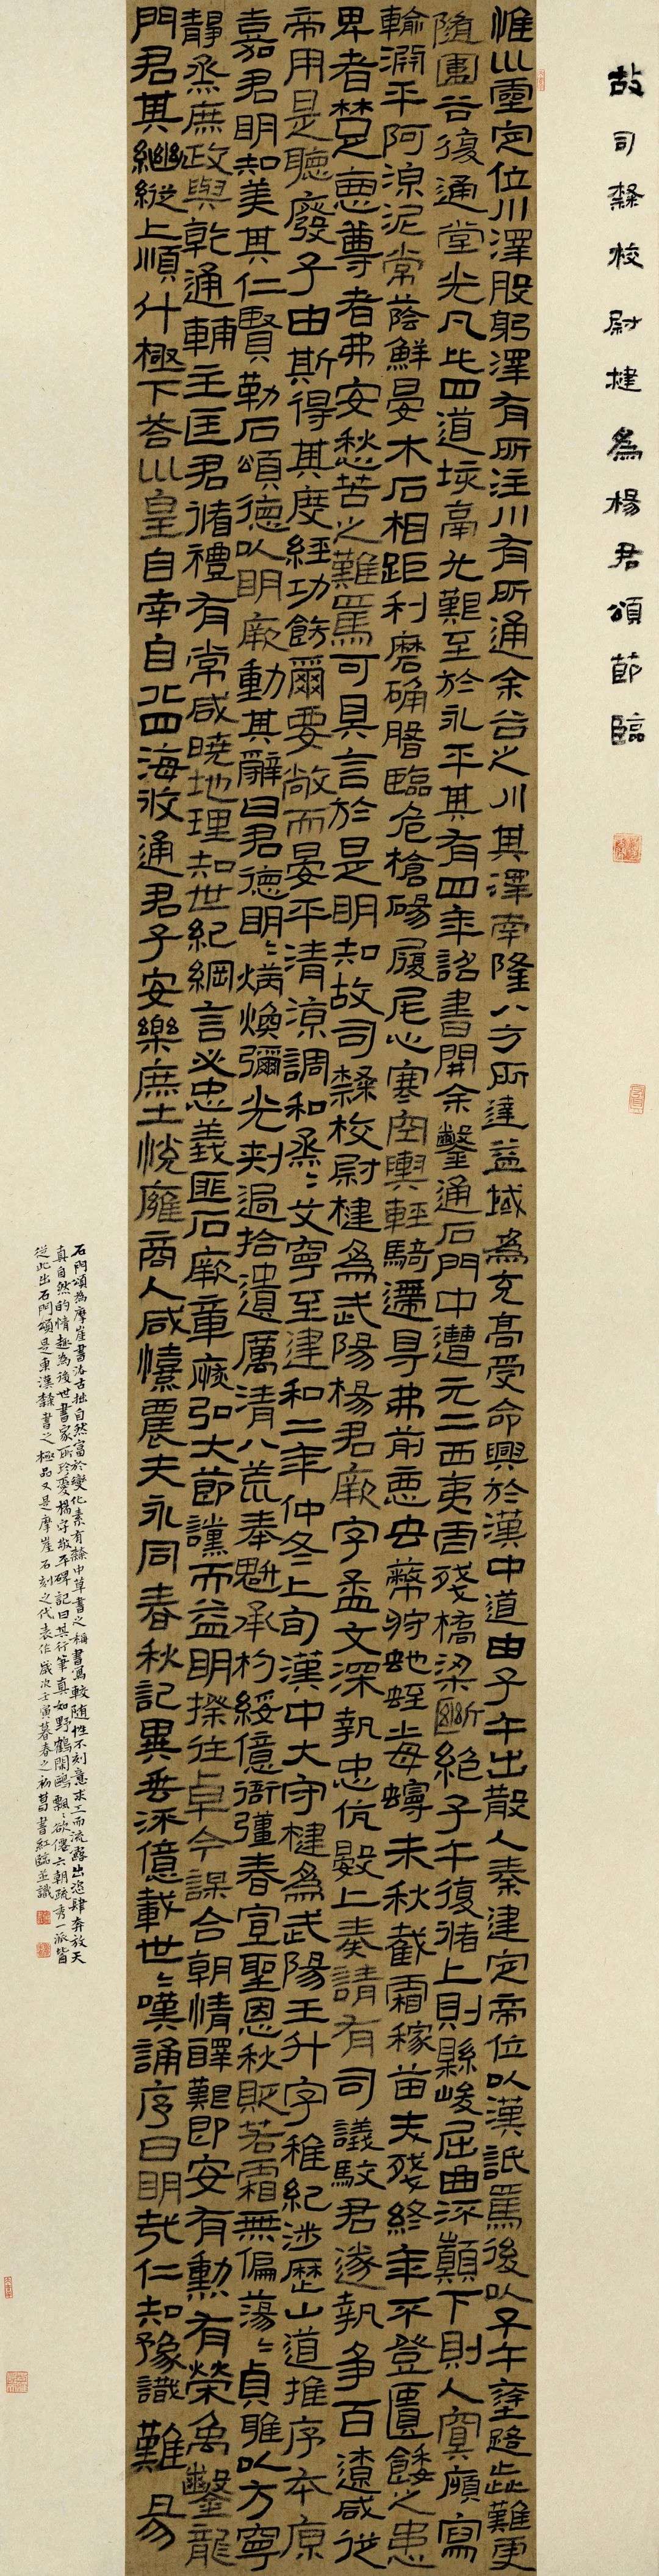 故司隸校尉楗為楊君頌節臨
惟巛靈定位川澤股躬澤有所注川有所通余谷之川其澤南隆八方所達益域為充高受命興於漢中道由子午出散入秦建定帝位以漢詆焉後以子午塗路歰難更
隨圍谷復通堂光凡此四道垓鬲尤艱至於永平其有四年詔書開余鑿通石門中遭元二西夷虐殘橋梁斷絕子午復循上則縣峻屈曲流顛下則入冥傾寫
輸淵平阿涼泥常蔭鮮晏木石相距利磨确磐臨危槍碭履尾心寒空輿輕騎遰㝵弗前惡虫蔽狩虵蛭毒蟃未秋截霜稼苗夭殘終年不登匱餧之患
卑者楚惡尊者弗安愁苦之難焉可具言於是明知故司隸校尉楗為武陽楊君厥字孟文深執忠伉數上奏請有司議駮君遂執爭百遼咸從
帝用是聽廢子由斯得其度經功飭爾要敞而晏平清涼調和烝〻艾寧至建和二年仲冬上旬漢中大守楗為武陽王升字稚紀涉歷山道推序本原
嘉君明知美其仁賢勒石頌德以明厥勳其辭曰君德明〻炳煥彌光刺過拾遺厲清八荒奉魁承杓綏億衙彊春宣聖恩秋貶若霜無偏蕩〻貞雅以方寧
靜烝庶政與乾通輔主匡君循禮有常咸曉地理知世紀綱言必忠義匪石厥章恢弘大節讜而益明揆往卓今謀合朝情醳艱即安有勳有榮禹鑿龍
門君其繼縱上順斗極下答巛皇自南自北四海攸通君子安樂庶士悅雍商人咸憘農夫永同春秋記異垂流億載世〻嘆誦序曰明哉仁知豫識難易
石門頌為摩崖書法古拙自然富於變化素有隸中草書之稱書寫較隨性不刻意求工而流露出恣肆奔放天
真自然的情趣為後世書家所珍愛楊守敬平碑記曰其行筆真如野鶴閑鷗飄〻欲僊六朝疏秀一派皆
從此出石門頌是東漢隸書之極品又是摩崖石刻之代表作歲次壬寅暮春之初書紅臨並識